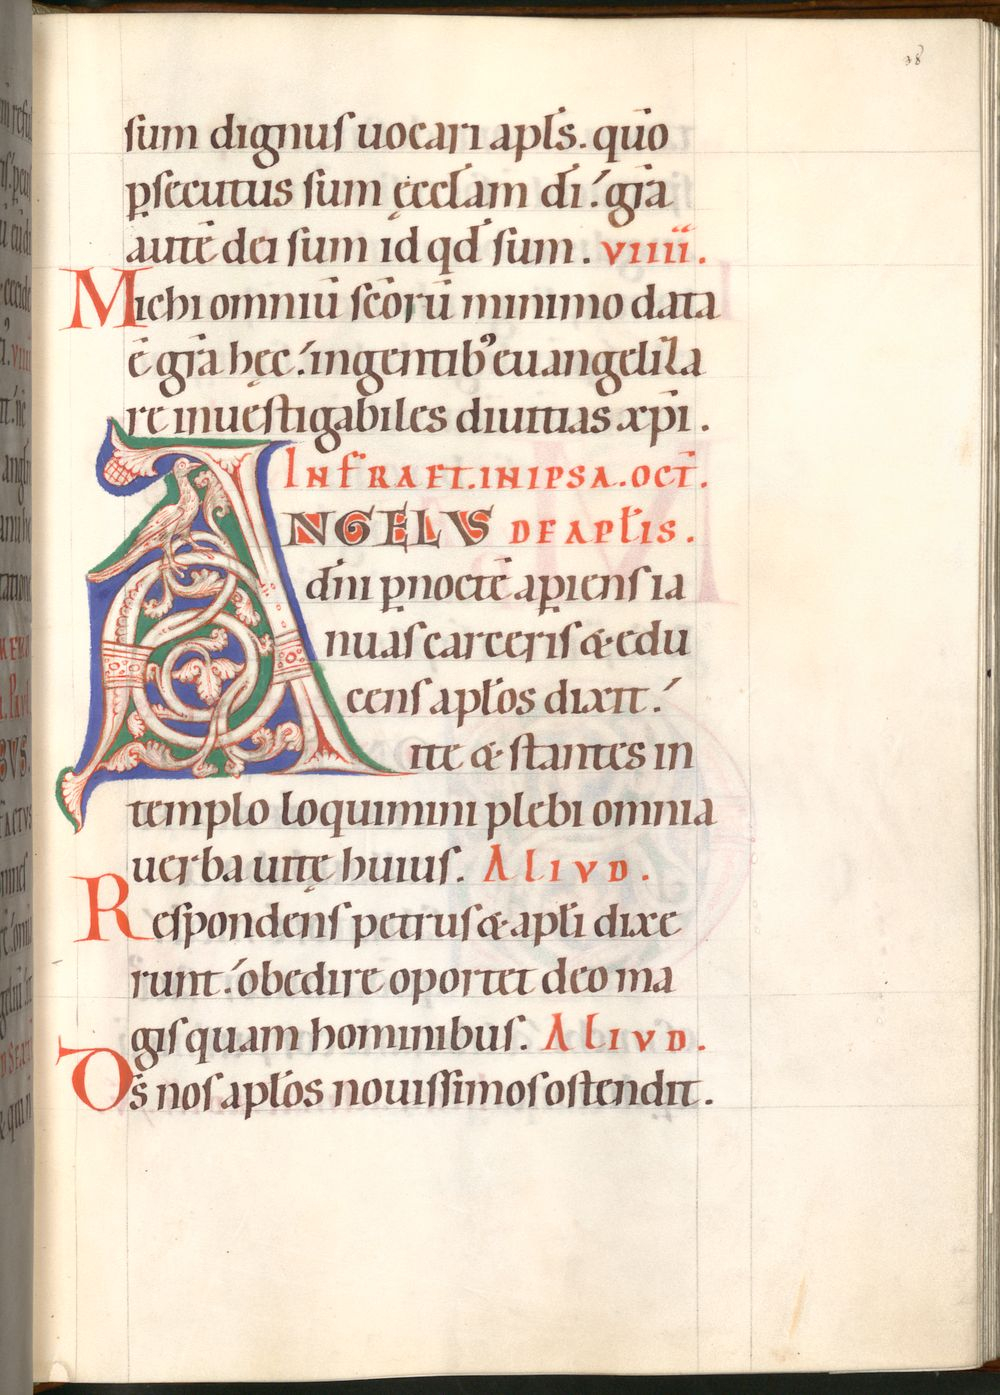 38
sum dignus uocari apl̄s. quō
ꝑsecutus sum ęccl̄am dī: gr̄a
autē dei sum id qd̄ sum. VIIII.
Michi omniū scōrū minimo data
ē gr̄a hęc: in gentibꝰ euangeliza
re inuestigabiles diuitias xp̄i.
INFRA ET. IN IPSA. OCT̄.
ANGELVS DE APL̄IS.
dn̄i ꝑ noctē aꝑiens ia
nuas carceris & edu
cens apl̄os dixit:
ite & stantes in
templo loquimini plebi omnia
uerba uitę huius. ALIVD.
Respondens petrus & apl̄i dixe
runt: obedire oportet deo ma
gis quam hominibus. ALIVD.
Ds̄ nos apl̄os nouissimos ostendit.